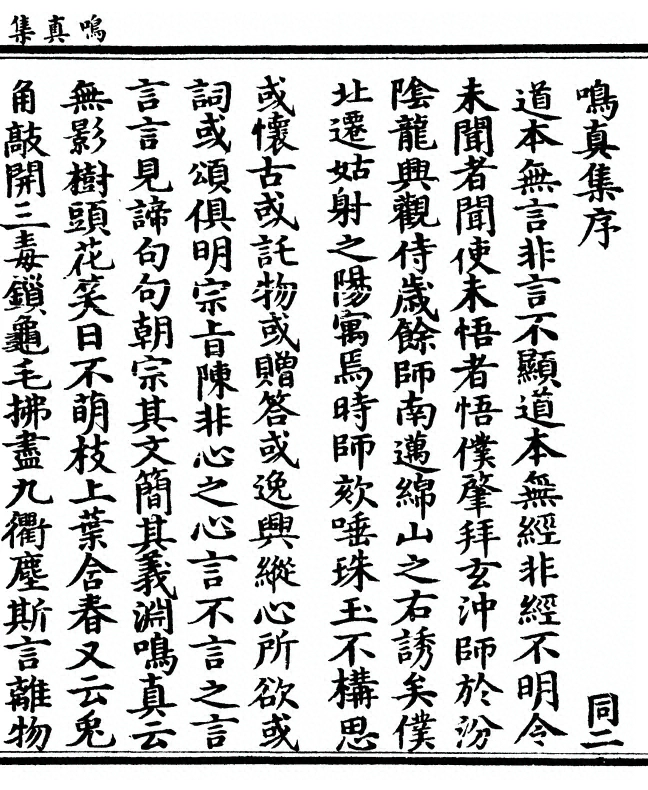 鳴真集
鳴真集序
同二
道本無言非言不顯道本無經非經不明令
未聞者聞使未悟者悟僕肇拜玄沖師於汾
陰龍興觀侍歲餘師南邁綿山之右誘矣僕
北遷姑射之陽寓焉時師欬唾珠玉不構思
或懷古或託物或贈答或逸興縱心所欲或
詞或頌俱明宗旨陳非心之心言不言之言
言言見諦句句朝宗其文簡其義淵鳴真云
無影樹頭花笑日不萌枝上葉含春又云兎
角敲開三毒鎖龜毛拂盡九衢塵斯言離物